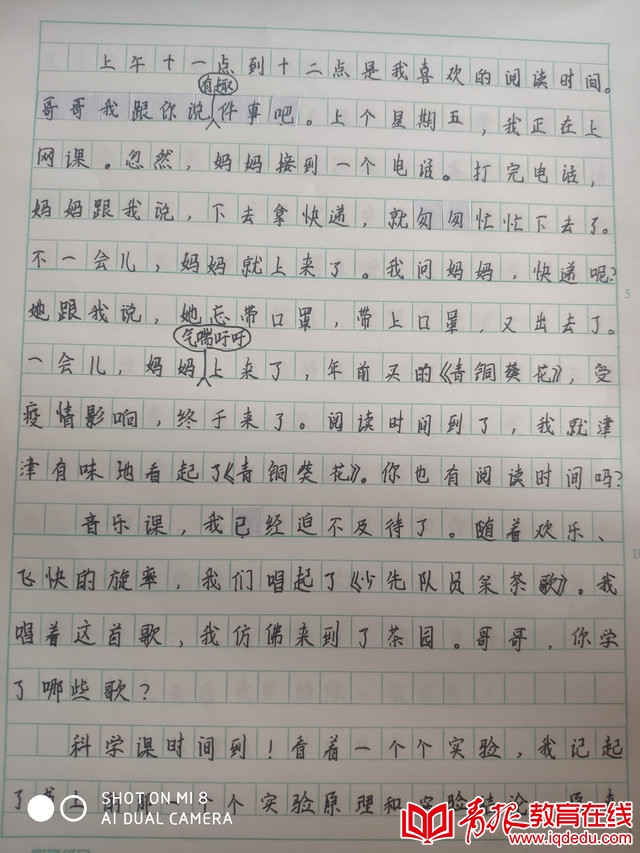 上午十一点到十二点是我喜欢的阅读时间。
有趣
哥哥我跟你说件事吧。上个星期五，我正在上
网课。忽然，妈妈接到一个电话。打完电话，
妈妈跟我说，下去拿快递，就匆匆忙忙下去了。
不一会儿，妈妈就上来了。我问妈妈，快递呢？
她跟我说，她忘带口罩，带上口罩，又出去了。
气喘吁吁
一会儿，妈妈上来了，年前买的《青铜葵花》，受
疫情影响，终于来了。阅读时间到了，我就津
津有味地看起了《青铜葵花》。你也有阅读时间吗？
音乐课，我已经迫不及待了。随着欢乐、
飞快的旋率，我们唱起了《少先队员采茶歌》。我
唱着这首歌，我仿佛来到了茶园。哥哥，你学
了哪些歌？
科学课时间到！看着一个个实验，我记起
了 上 那一个个实验原理和实验结论
SHOT ON MI 8
AI DUAL CAMERA
青报教育在线
www.iqdedu.com